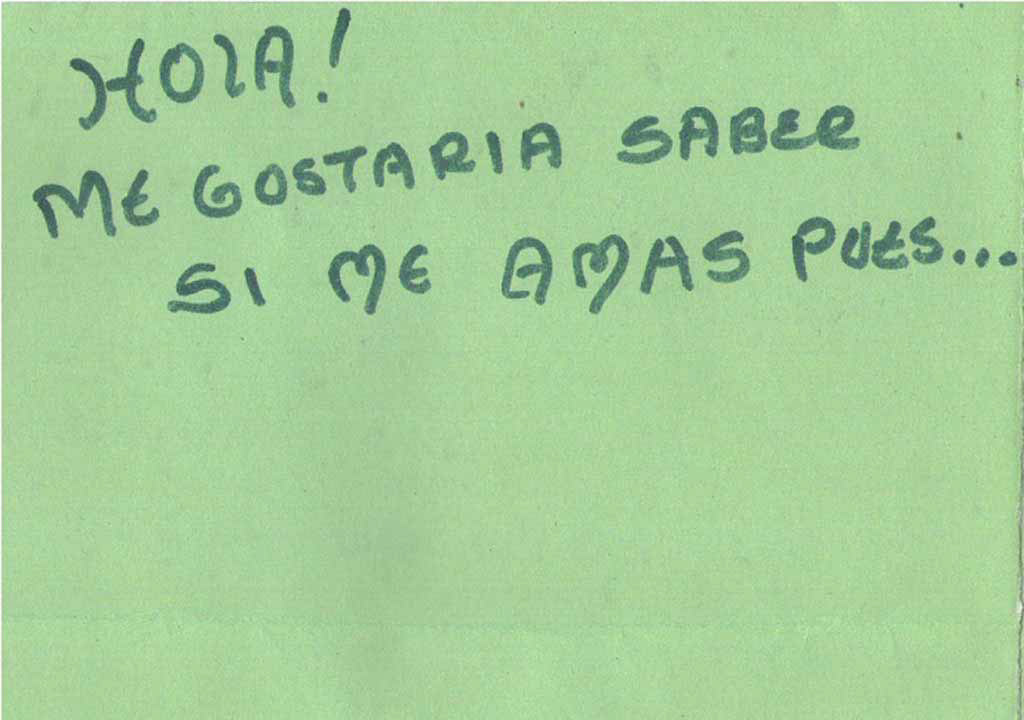 HOlA!
ME GOSTARIA SABER
SI ME AMAS PUES...